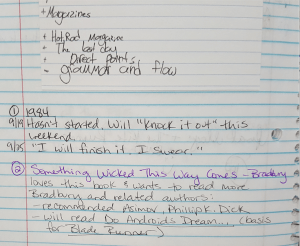 + Magazines
+ Hot Rod Magazine
+ The last day
- Direct Points,
- grammar and flow
① 1984
9/19 Hasn't started. Will "knock it out" this
weekend.
9/25 "I will finish it. I swear."
② Something Wicked This Way Comes - Bradbury
loves this book & wants to read more
Bradbury and related authors:
- recommended Asimov, Phillip K. Dick
- will read Do Androids Dream... (basis
for Blade Runner)